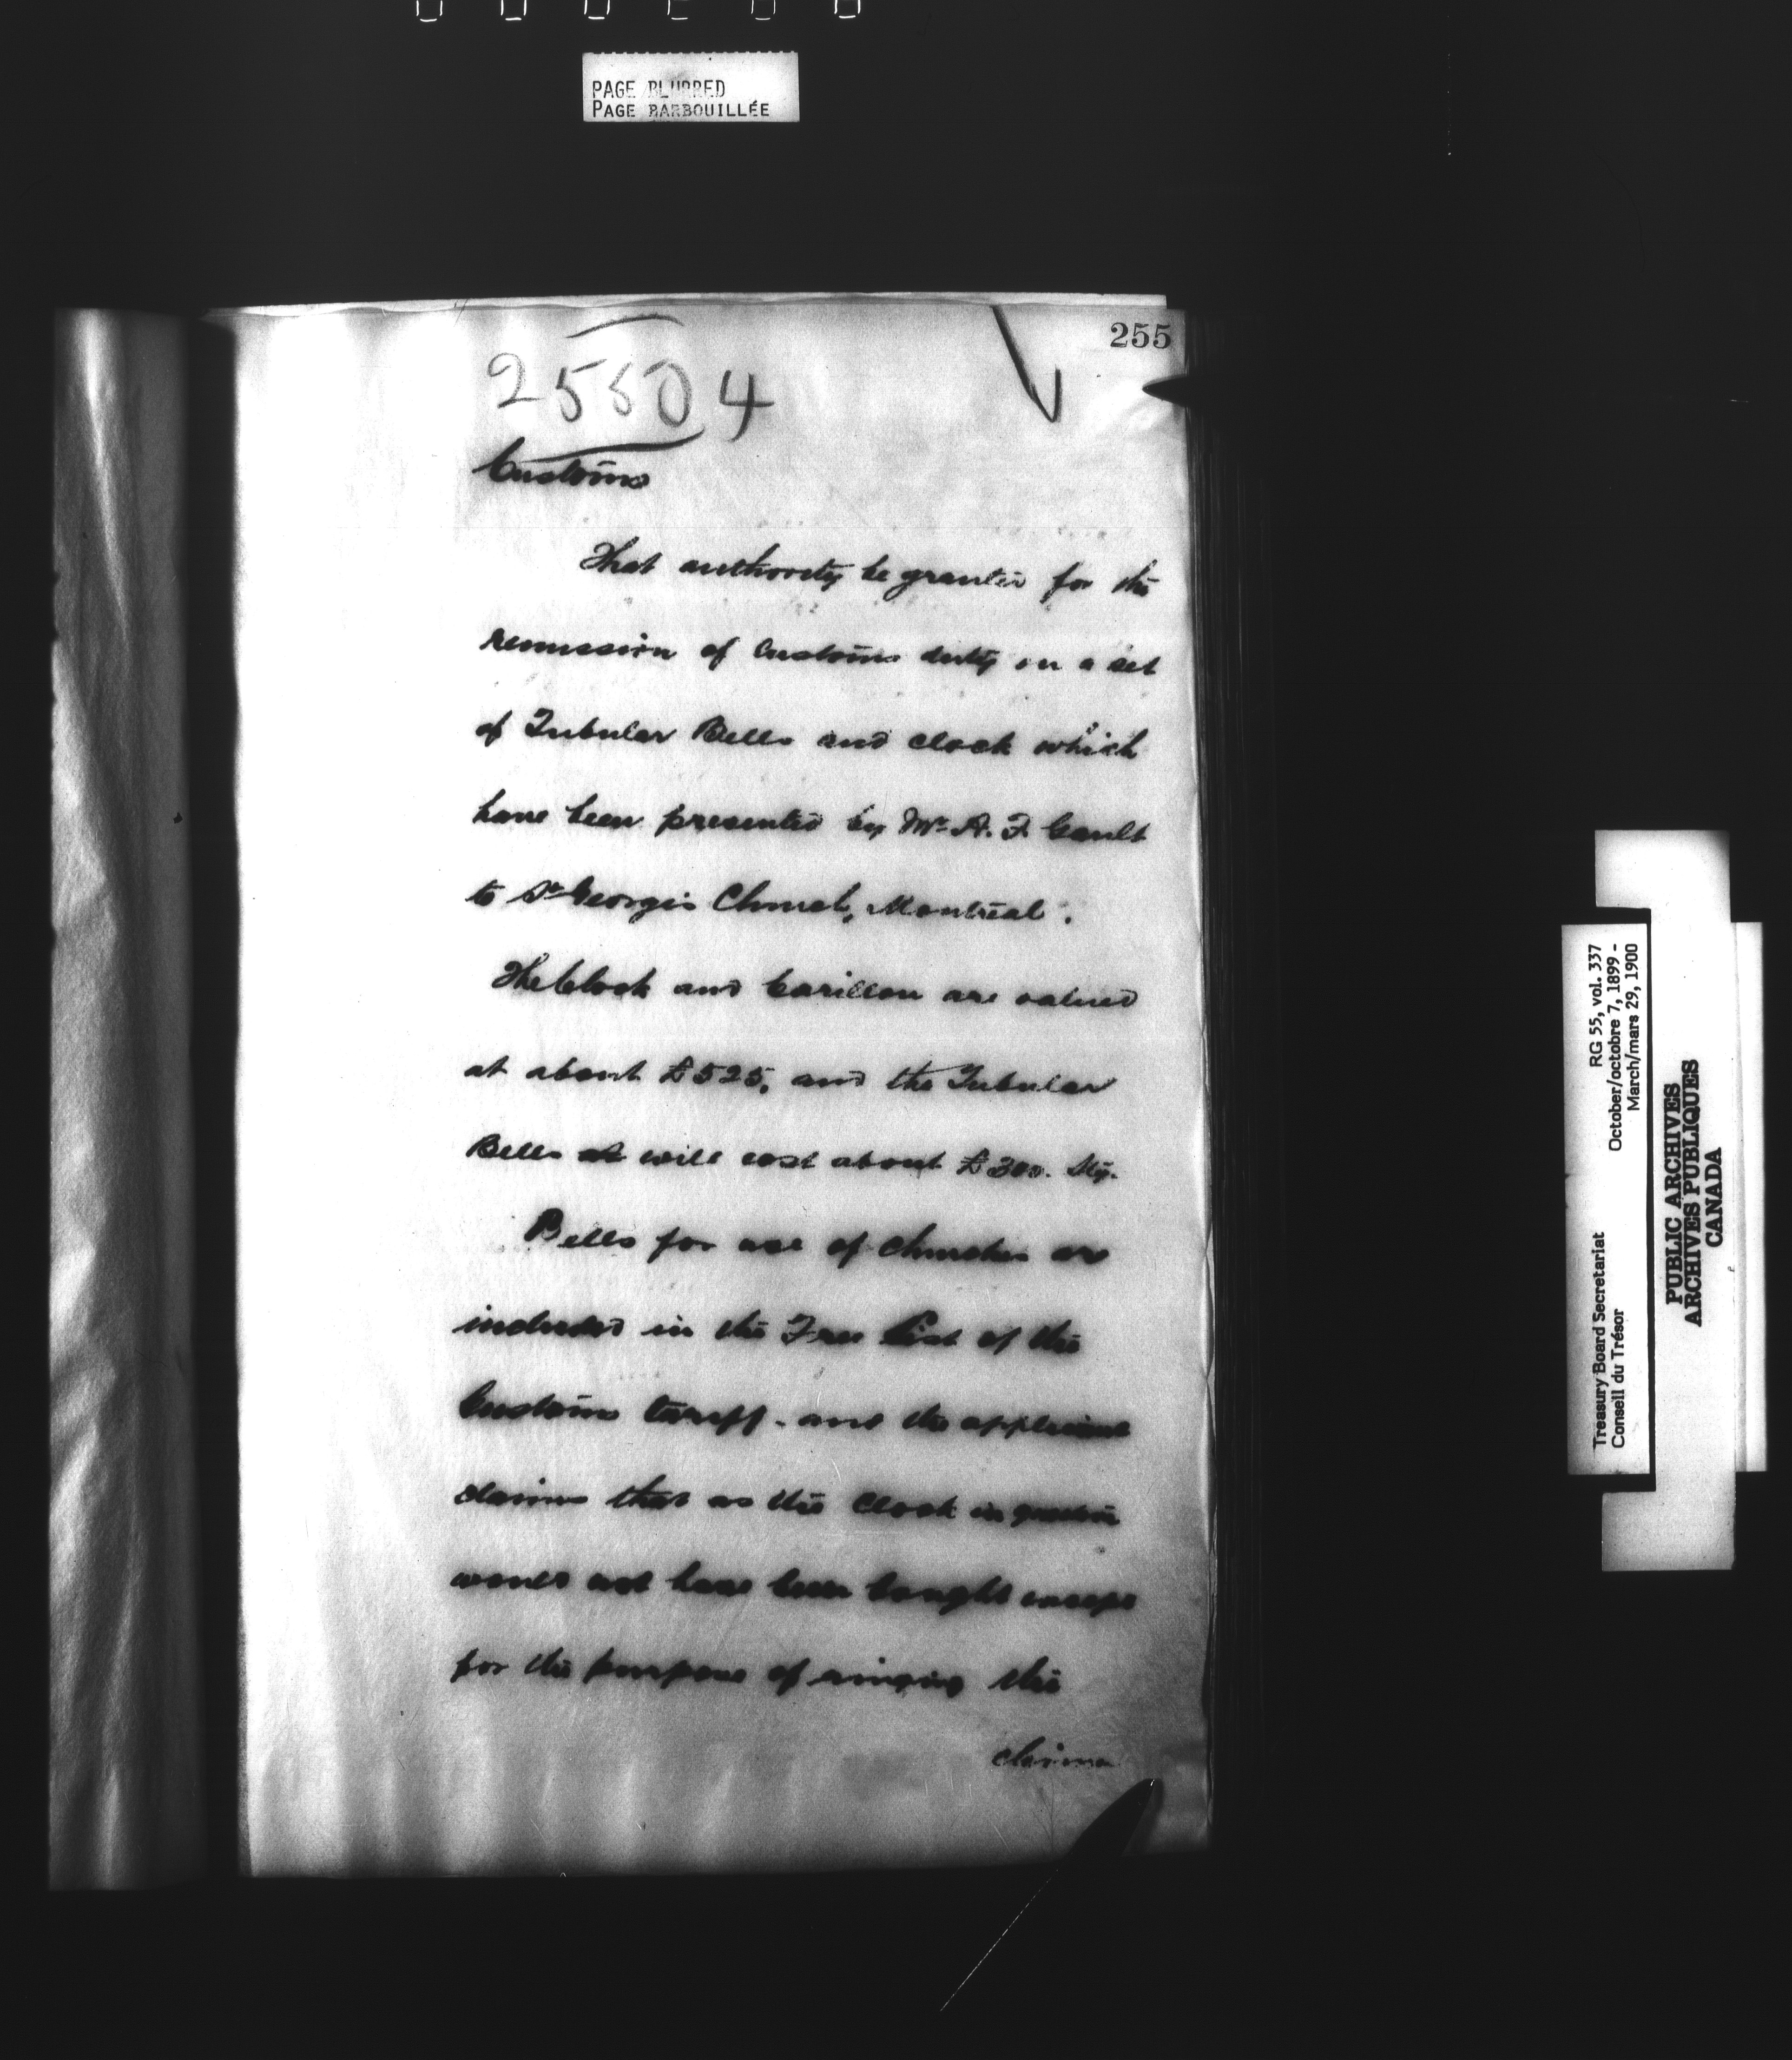 PAGE BLURRED
PAGE BARBOUILLÉE
255
25504
Customs
That authority be granted for the
remission of Customs duty on a set
of Tubular Bells and clock which
have been presented by Mr. A. F. Gault
to St. George's Church, Montreal.
The Clock and Carillon are valued
at about £525, and the Tubular
Bells at will cost about £300. Stg.
Bells for use of churches are
included in the Free List of the
Customs tariff - and the applicant
claims that as the Clock in question
would not have been bought except
for the purpose of ringing the
chimes
Treasury Board Secretariat
Conseil du Trésor
RG 55, vol. 337
October/octobre 7, 1899 -
March/mars 29, 1900
PUBLIC ARCHIVES
ARCHIVES PUBLIQUES
CANADA